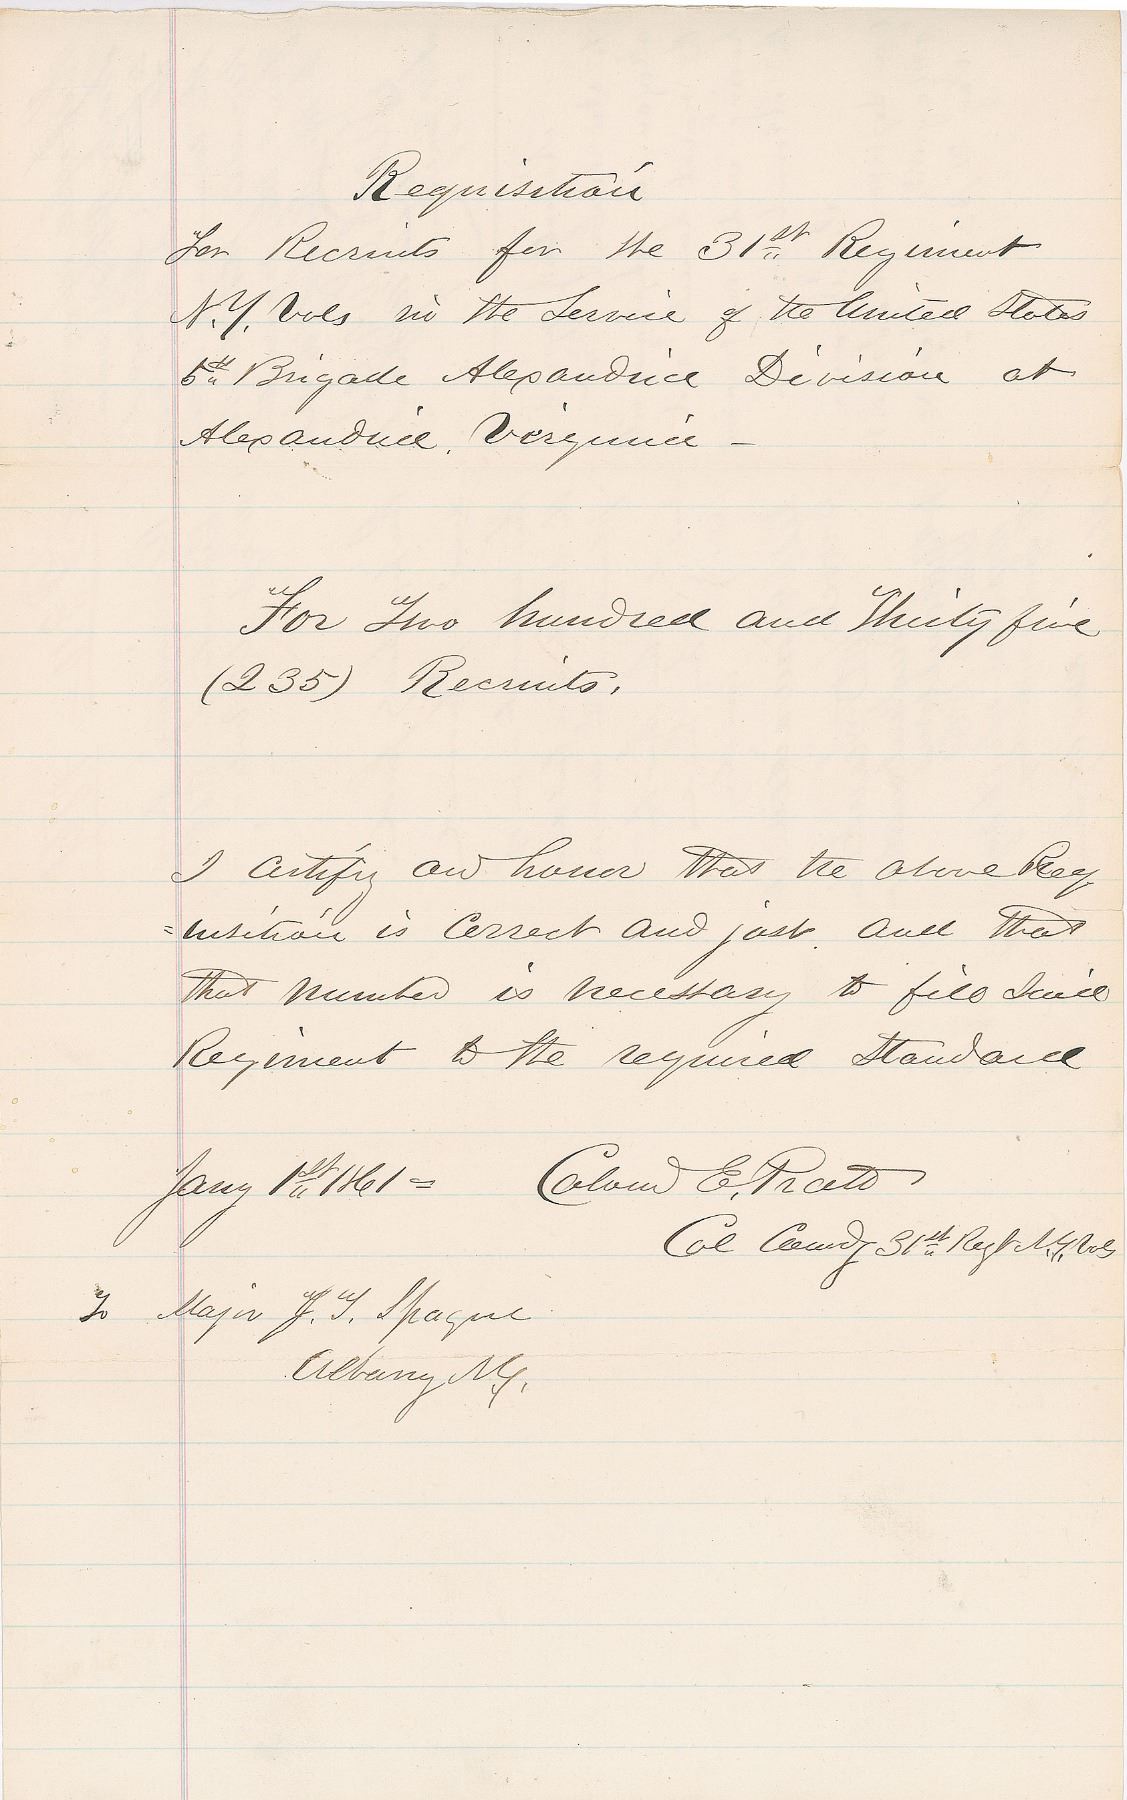 Requisition
For Recruits for the 31st Regiment
N.Y. Vols in the Service of the United States
5th Brigade Alexandria Division at
Alexandria, Virginia -
For Two hundred and Thirty five
(235) Recruits.
I certify on honor that the above Req
=uisition is correct and just. and that
that number is necessary to fill said
Regiment to the required Standard
Jany 1st 1861 = Colond E. Pratt
Col Comdg 31st Regt N.Y. Vols
To Major J. T. Spague
Albany N.Y.